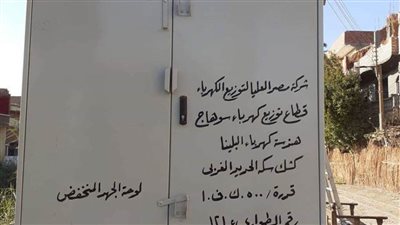 شركة مصر العليا لتوزيع الكهرباء
قطاع توزيع كهرباء سوهاج
هندسة كهرباء البلينا
كشك سكة الحديد الغربى
قدرة / ٥٠٠ ك.ف.ا
رقم الطوارئ / ١٢١
لوحة الجهد المنخفض